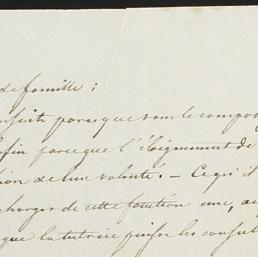 de famille ;
ensuite parceque dans le compos
enfin parceque l'éloignement de
tion de leur volonté. — Ce qui i
charger de cette fonction une, au
que la tutrice puisse les consult